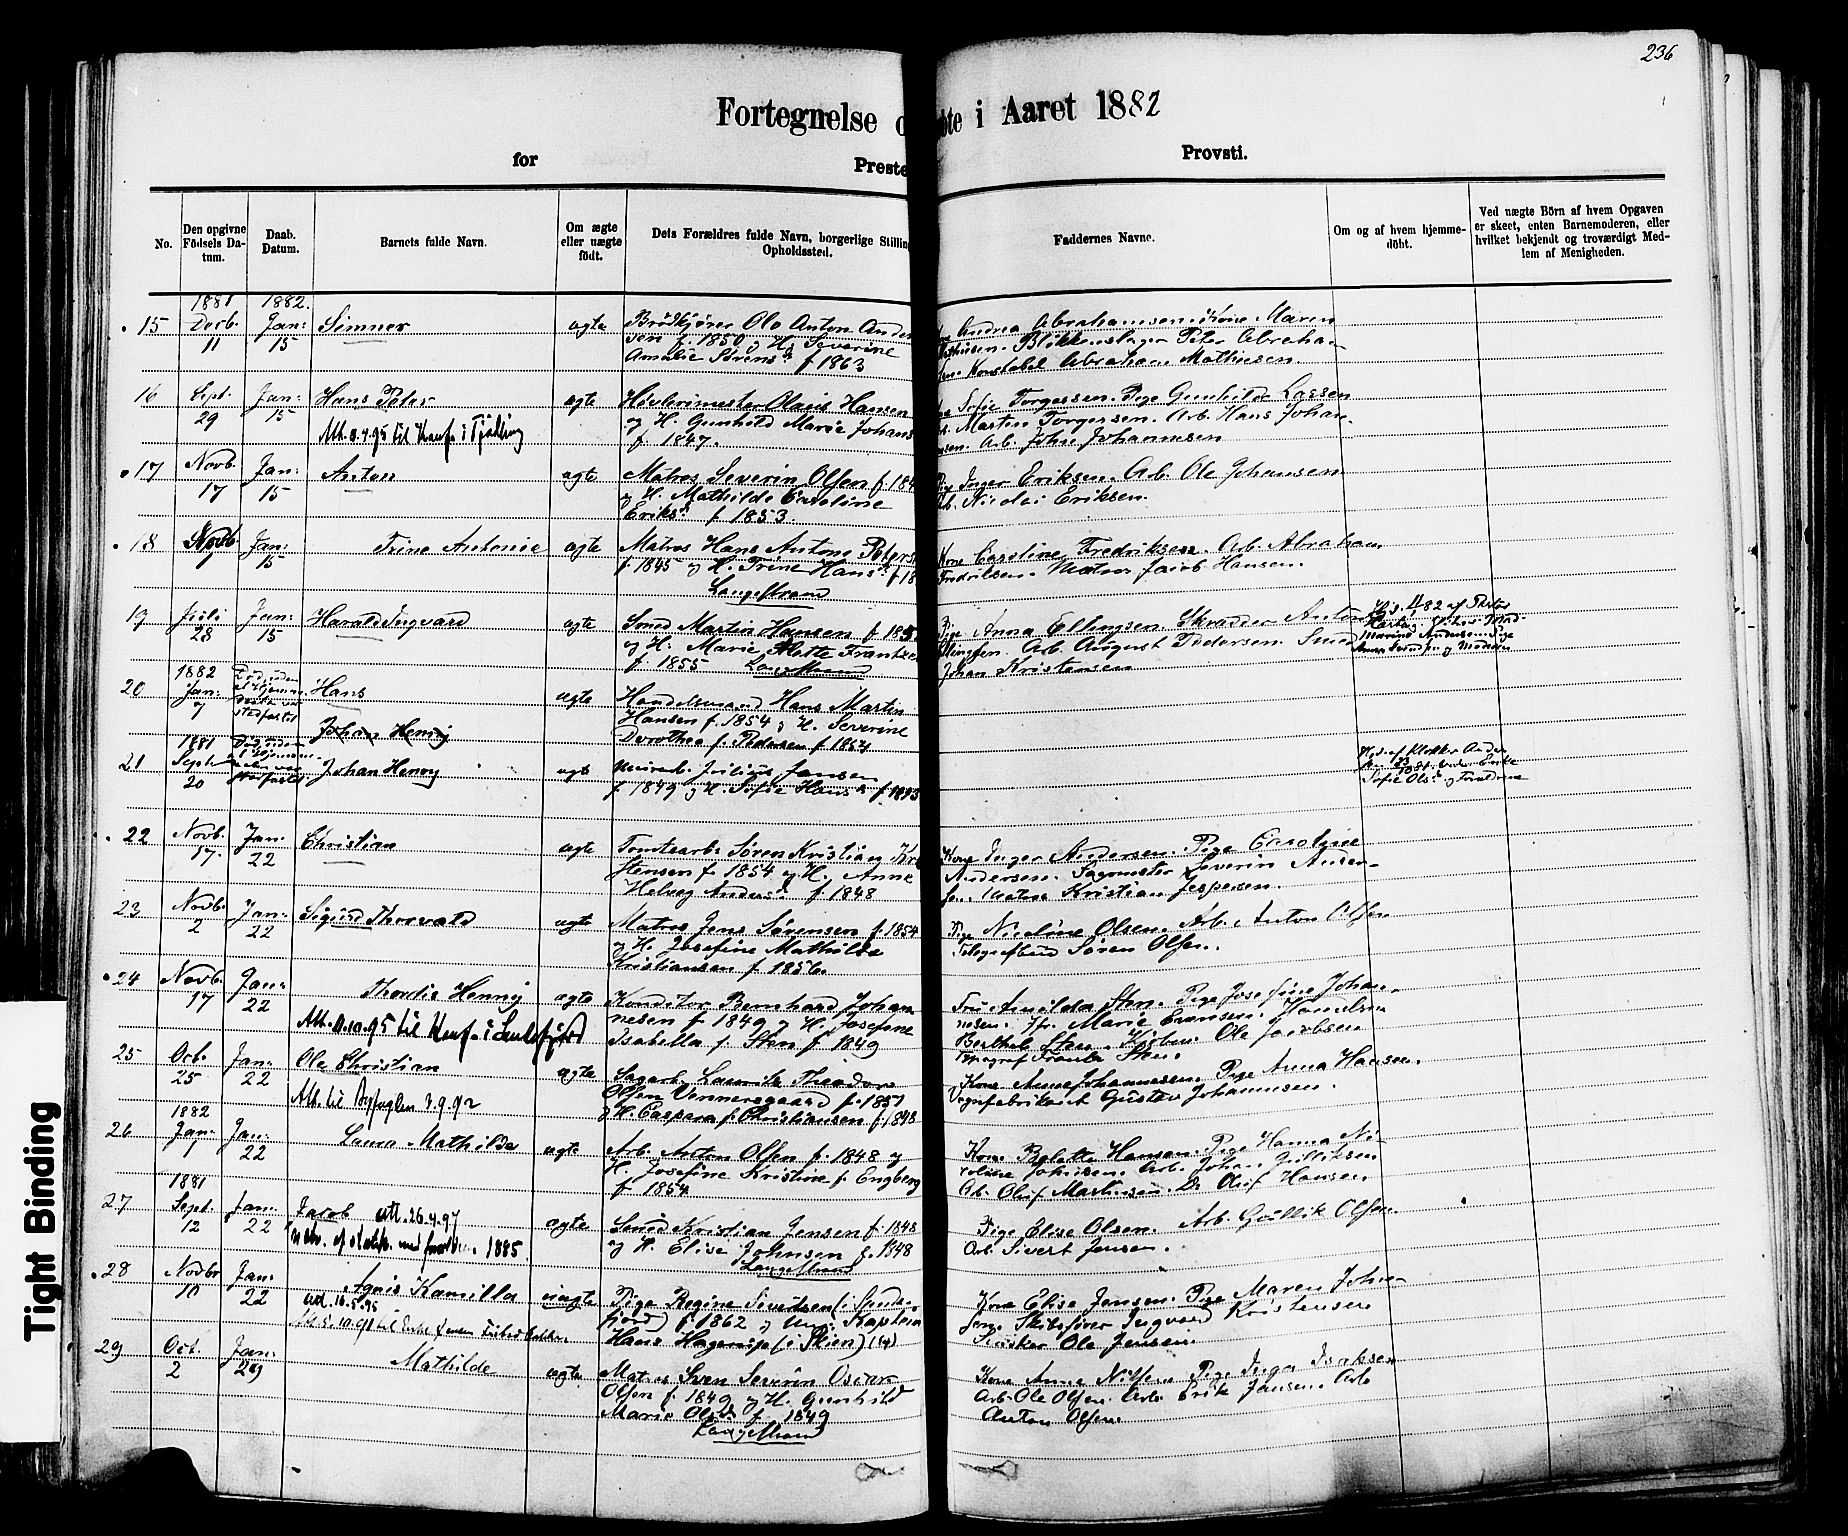 236
Fortegnelse o
bte i Aaret 1882
for
Preste
Provsti.
No.
Den opgivne Födsels Datum.
Daab. Datum.
Barnets fulde Navn.
Om ægte eller uægte födt.
Dets Forældres fulde Navn, borgerlige Stilling
Opholdssted.
Faddernes Navne.
Om og af hvem hjemmedöbt.
Ved uægte Börn af hvem Opgaven
er skeet, enten Barnemoderen, eller
hvilket bekjendt og troværdigt Medlem af Menigheden.
1881 1882.
15 Decb. 11 Jan: 15 Simner ægte Brödkjörer Ole Anton Ander
sen f. 1850 og H. Severine
Amalie Sörensd. f 1863
Andrea Abrahamsen. Kone Maren
Mathisen. Blikkenslager Peter Abraham
sen. Konstabel Abraham Mathisen.
16 Sept. 29 Jan: 15 Hans Peter ægte Hövlerimester Olaus Hansen
og H. Gunhild Marie Johans
f. 1847.
Att. 9.4.95 til Konf. i Tjölling
Sofie Torgersen. Pige Gunhild Lassen
Martin Torgersen. Arb. Hans Johan-
nsen. Arb. John Johannesen
17 Novb. 17 Jan: 15 Anton ægte Matros Severin Olsen f. 184
og H. Mathilde Caroline
Eriksd. f 1853.
Pige Inger Eriksen. Arb. Ole Johansen
Arb. Nicolai Eriksen.
18 Novb. 7 Jan: 15 Trine Antonie ægte Matros Hans Anton Peters
f. 1845 og H. Trine Hansd. f 18
Langestrand
Kone Caroline Fredriksen. Arb. Abraham
Fredriksen. Matros Jacob Hansen.
19 Juli 28 Jan: 15 Harald Ingvard ægte Smed Martin Hansen f. 185
og H. Marie Mette Frantze
f. 1855 Langestrand
Pige Anna Ellingsen. Skrædder Anton
Ellingsen. Arb. August Pedersen. Smed
Johan Kristensen
20 1882 Jan: 7 Hans ægte Handelsmand Hans Martin
Hansen f. 1854 og H. Severine
Dorothea f. Pedersen f. 1854
Johan Henrij
21 1881 Septr. 20 Johan Henry ægte Murarb. Julius Jansen
f. 1849 og H. Sofie Hansd. f. 1853
22 Novb. 17. Jan: 22 Christian ægte Tomtearb. Sören Kristian Kri
stensen f. 1854 og H. Anne
Helveg Andersd. f. 1848
Kone Inger Andersen. Pige Caroline
Andersen. Sagmester Severin Ander-
sen. Matros Kristian Jespersen.
23 Novb. 2 Jan: 22 Sigurd Thorvald ægte Matros Jens Sörensen f. 1854
og H. Josefine Mathilde
Kristiansen f. 1856.
Pige Nicoline Olsen. Arb. Anton Olsen
Telegrafbud Sören Olsen.
24 Novb. 17 Jan: 22 Thordis Henny ægte Konditor Bernhard Johan
nesen f. 1849 og H. Josefine
Isabella f. Sten f 1849
Att. 9.10.95 til Konf. i Sandefjord
Fru Amilda Sten. Pige Josefine Johan-
nesen. Jfr. Marie Evensen. Handelsm
Berthel Sten. Kjöbm. Ole Jacobsen
25 Oct. 25 Jan: 22 Ole Christian ægte Sagarb. Lauritz Theodor
Olsen Vemmersgaard f. 1851
og H. Caspara f. Christiansen f. 1848
Att. til Byfoglen 3.9.92
Kone Anne Johannesen. Pige Anna Hansen.
Vognfabrikant Gustav Johannesen.
26 1882 Jan: 7 Jan: 22 Laura Mathilde ægte Arb. Anton Olsen f. 1848 og
H. Josefine Kristine f. Engberg
f. 1854
Kone Bolette Hansen. Pige Hanna Ni-
coline Johnsen. Arb. Johan Gulliksen
Arb. Oluf Martinsen. Do. Oluf Hansen.
27 1881 Sept. 12 Jan: 22 Jacob att. 26.4.97 ægte Smed Kristian Jensen f. 1848
og H. Elise Johnsen f. 1848
Langestrand
Pige Elise Olsen. Arb. Gullik Olsen
Arb. Sivert Jensen.
28 Novbr 10 Jan: 22 Agnes Kamilla uægte Pige Regine Sivertsen (i Sande-
fjord) f. 1862 og Um: Kaptein
Hans Hagerup (i Skien) (14)
ud. 16.5.95
Kone Elise Jensen. Pige Maren Johan-
sen. Skibsförer Ingvard Kristensen
Snedker Ole Jensen.
29 Oct. 2 Jan: 29 Mathilde ægte Matros Sven Severin Oscar
Olsen f. 1849 og H. Gunhild
Marie Olsd. f. 1849
Langestrand
Kone Anna Nilsen. Pige Inga Isaksen
Arb. Ole Olsen. Arb. Erik Jansen. Arb
Anton Olsen.
Tight Binding